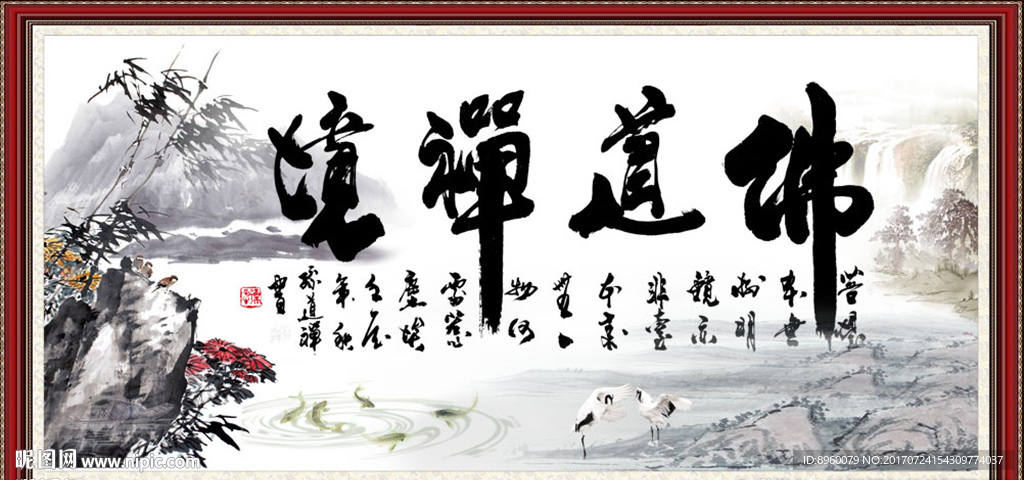 佛道禪境
菩提
本無
樹明
鏡亦
非臺
本来
無一
物何
處惹
塵埃
年秋
道禪
昵图网 www.nipic.com
ID:8960079 NO:20170724154309774037